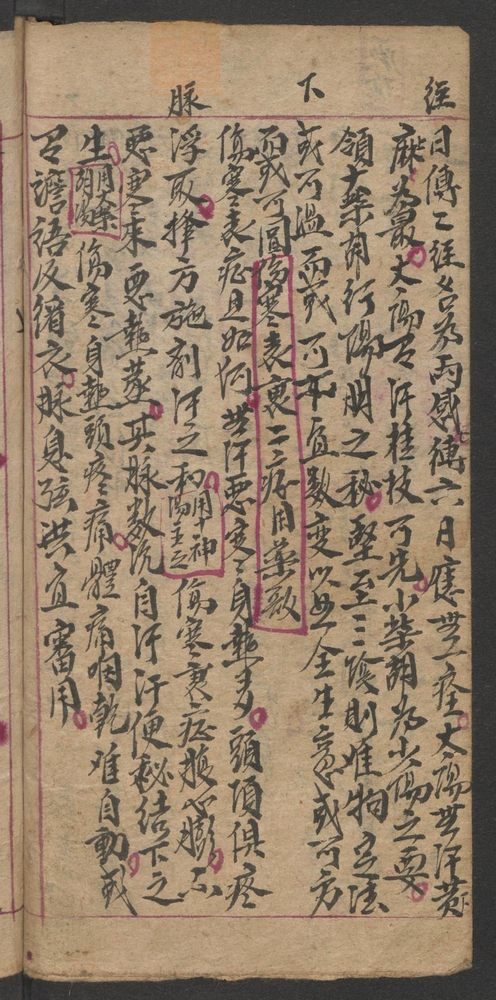 經
日傳二經名為兩感傳六日應無一痊太陽無汗麻
麻黃為最太陽有汗桂枝可先小柴胡為少陽之要
領大柴胡行陽明之秘堅至三陰則難拘定法
或可溫而或可下宜數變以曲全生意或可方
下
而或可圓傷寒表裏二症用藥歌
傷寒表症是如何無汗惡寒身熱多頭項俱疼
脉
浮取擇方施劑汗之和用十神湯主之傷寒裏症腹心膨不
惡寒來惡熱蒸其脉數沉自汗汗便秘結下之
生用大柴胡湯傷寒身熱頭疼痛體痛咽乾难自動或
有譫語及循衣脉息弦洪宜審用